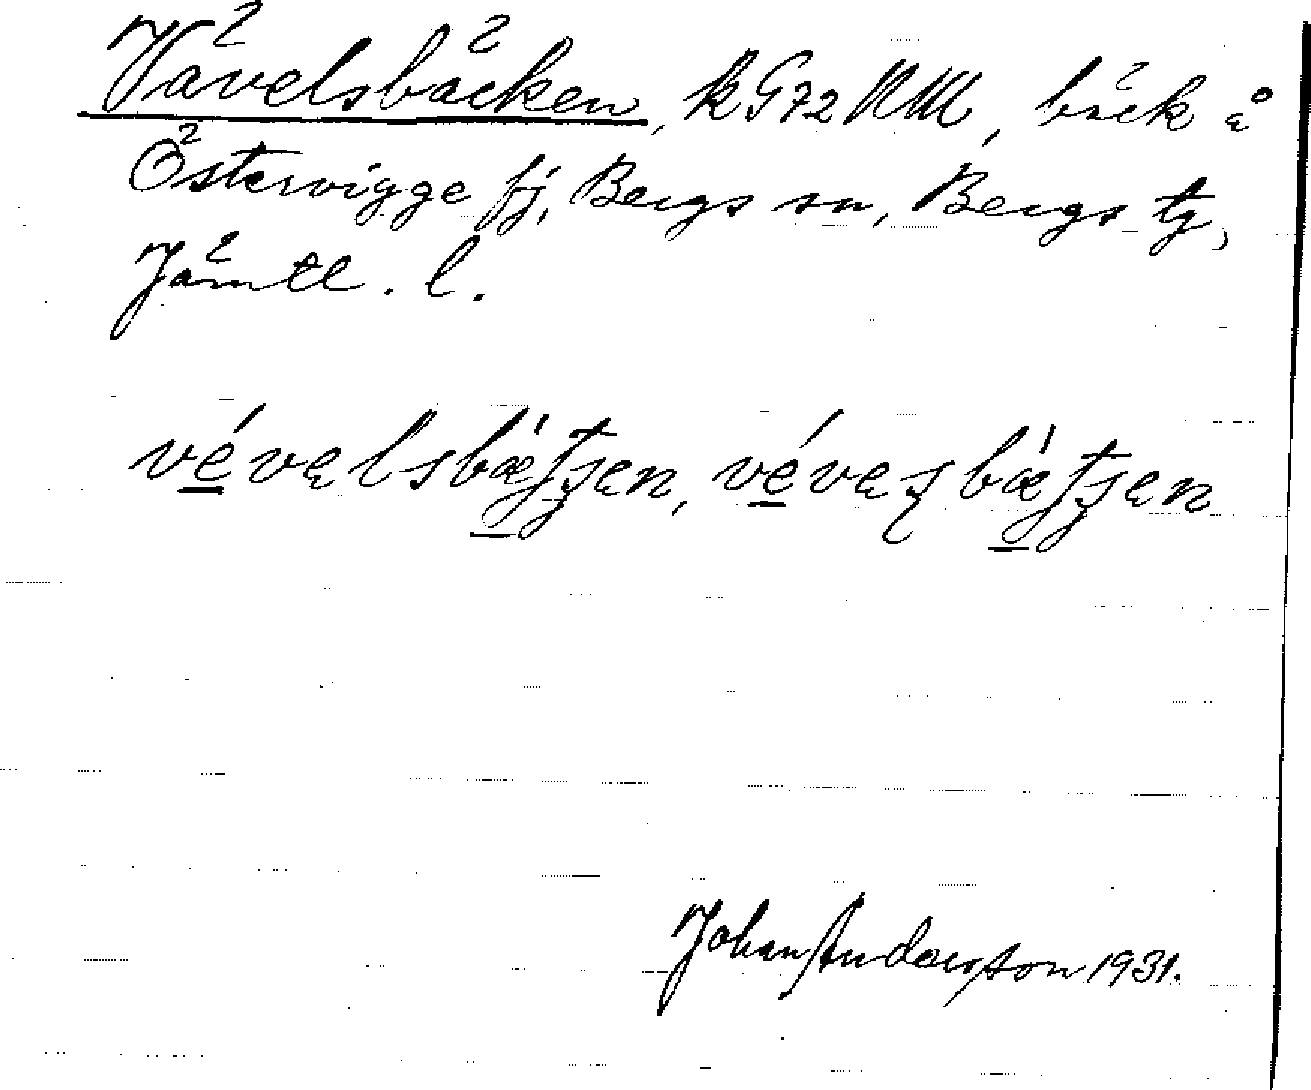 Vävelsbäcken, kG72 NM, bäck å
Östervigge fj, Bergs sn, Bergs tg,
Jämtl. l.
vévelsbæʃʒen, véveʒbæʃʒen
Johan Anderson 1931.